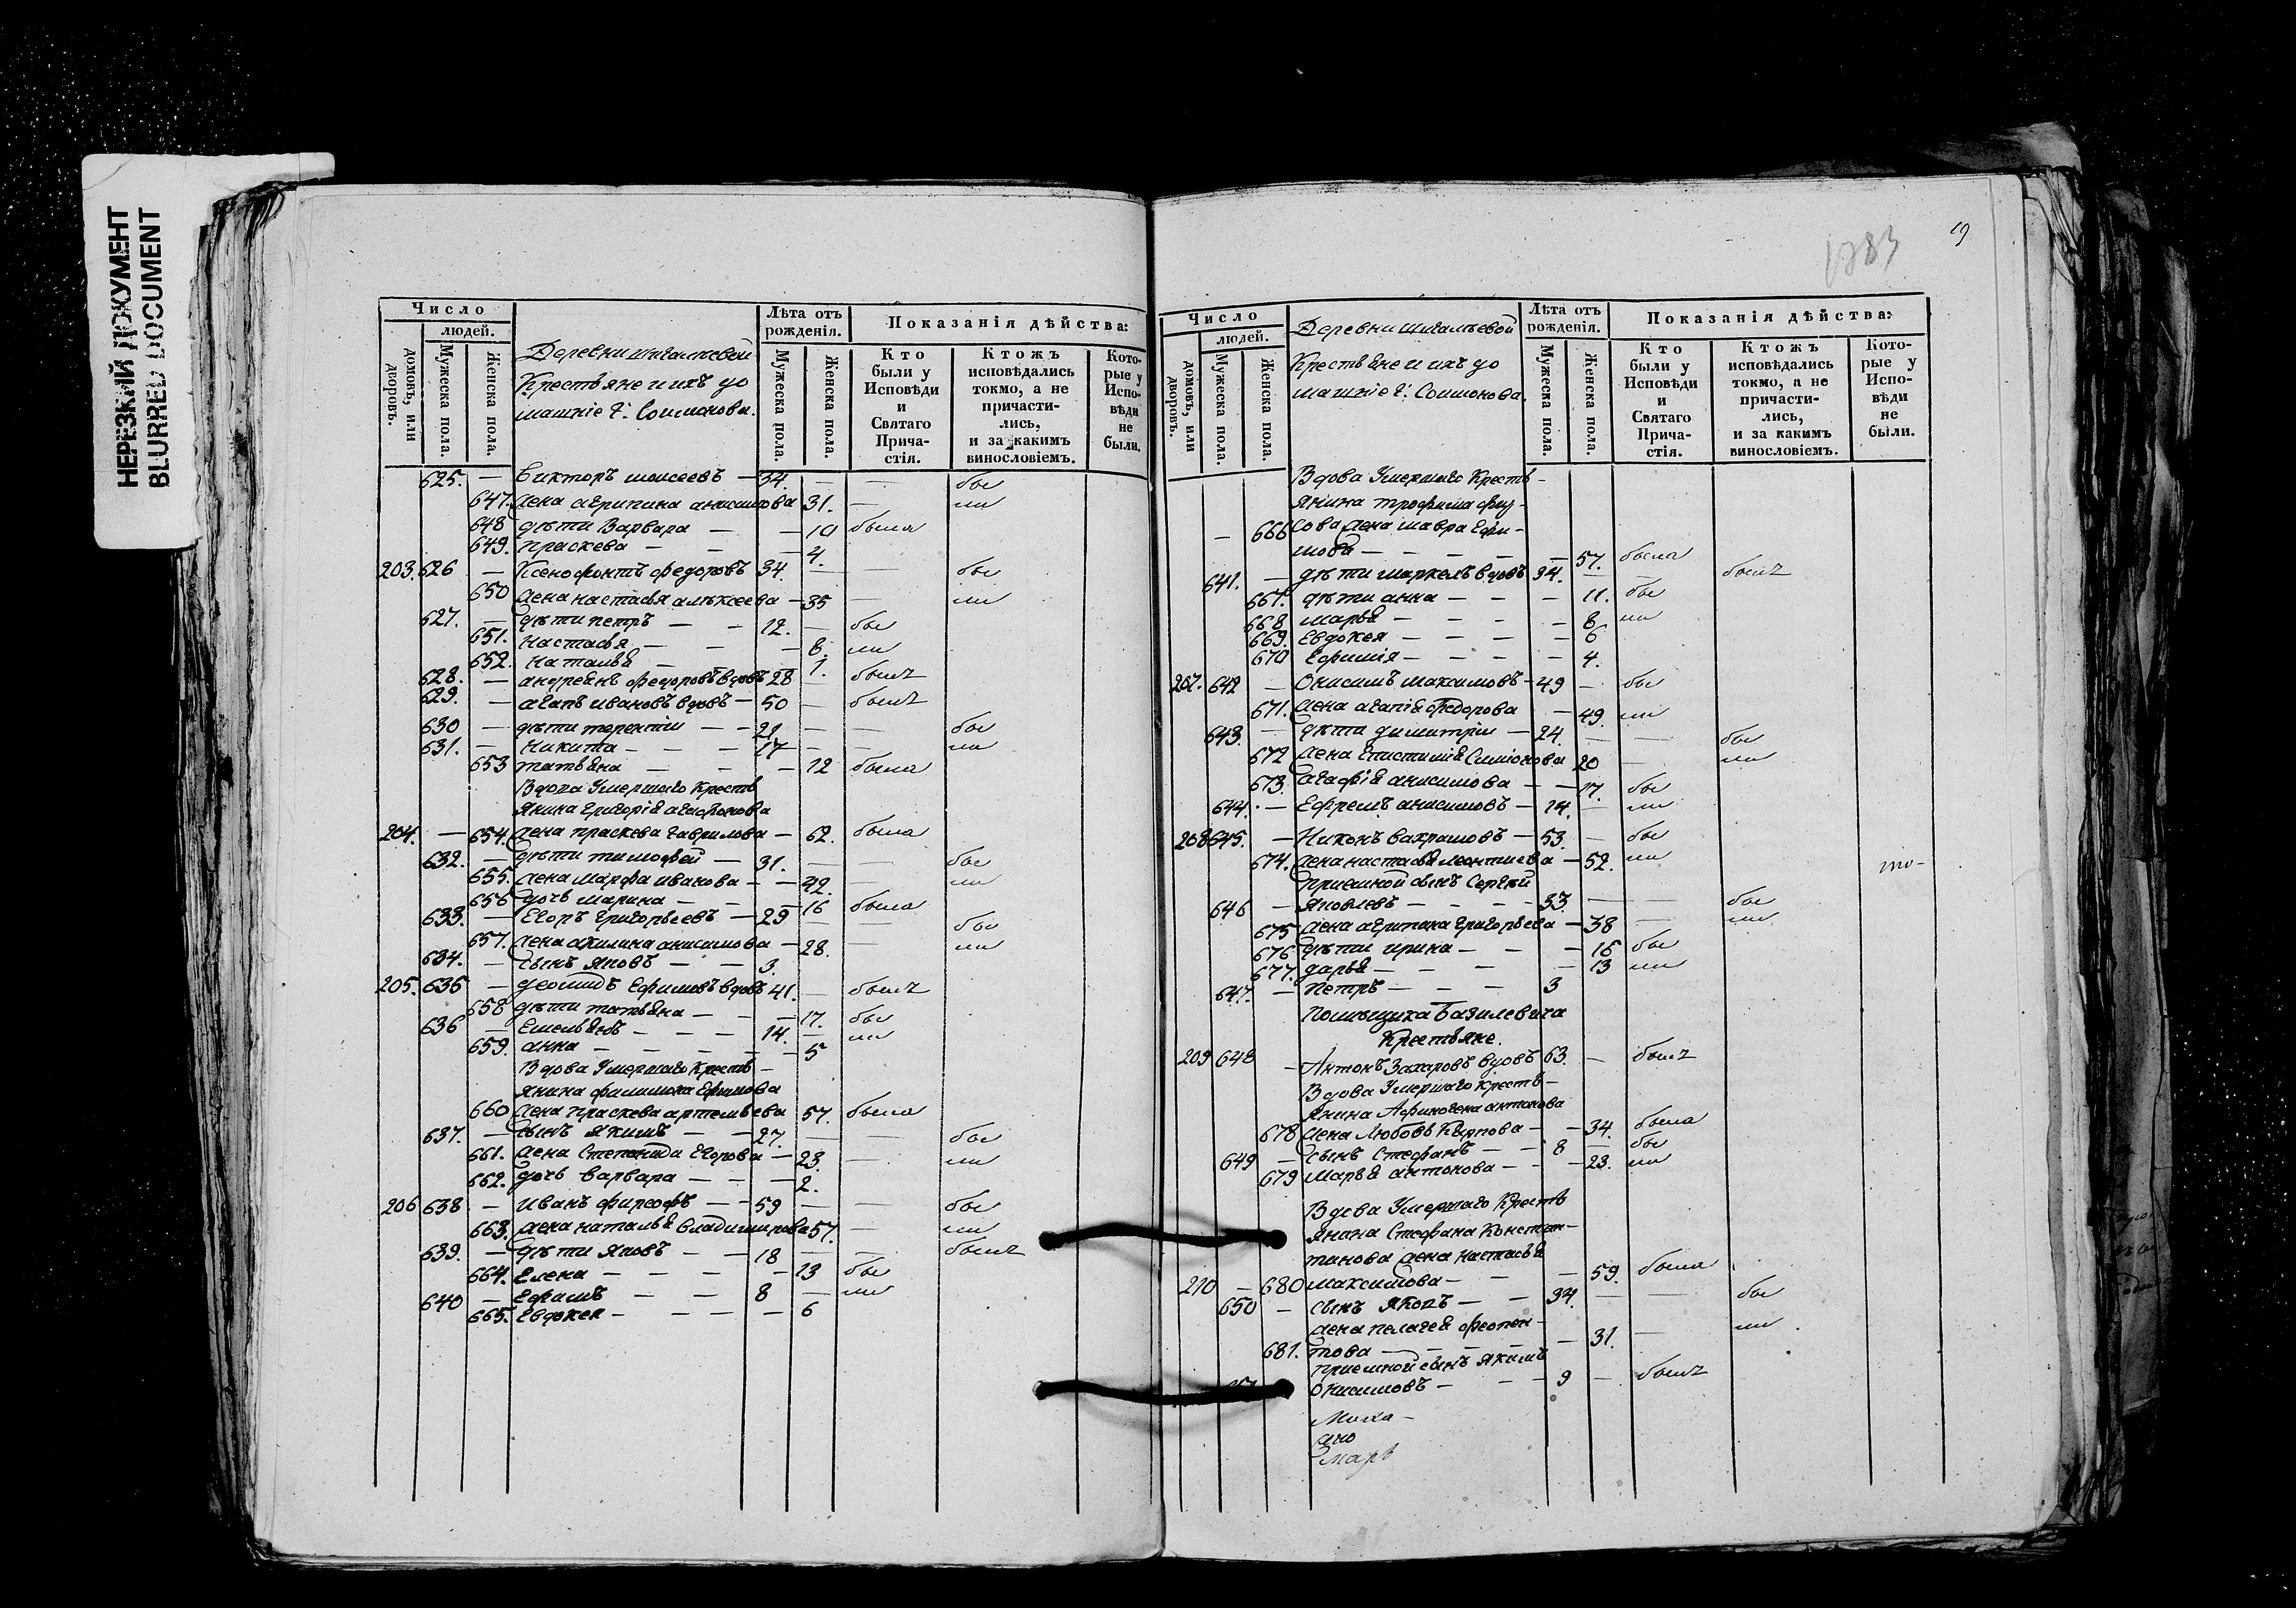 НЕРЕЗКИЙ ДОКУМЕНТ
BLURRED DOCUMENT
Число
людей.
домовъ, или дворовъ.
Мужеска пола.
Женска пола.
Деревни
Крестьяне и ихъ до
машніе г: Соимонова.
Лѣта отъ рожденія.
Мужеска пола.
Женска пола.
Показанія дѣйства:
Кто были у Исповѣди и Святаго Прича- стія.
Ктожъ исповѣдались токмо, а не причасти- лись, и за какимъ винословіемъ.
Кото- рые у Испо- вѣди не были.
625. — Викторъ моисеевъ — 34. — — бы
647. жена агрипина анисимова 31. — ли
648 дѣти Варвара — — 10 была
649. праскева — — — 4.
203. 626 — Ксенофонтъ федоровъ 34. — — бы
650 жена настасья алѣксеева — 35 — ли
627. — дѣти петръ — — 12. — бы
651. настасья — — 8. ли
652. наталья — — 1.
628. — андреянъ федоровъ вдовъ 28 — былъ
629. — агапъ ивановъ вдовъ — 50 — былъ
630 — дѣти терентіи — — 21 — — бы
631. — Никита — — — 17 — — ли
653 татьяна — — — 12 была
Вдова Умершаго Кресть
янина григорія агафонова
204. — 654. жена праскева гаврилова — 62. была
632. — дѣти тимофей — 31. — — бы
655. жена марфа иванова — — 42. — ли
656 дочь марина — — — 16 была
633. — Егоръ григорьевъ — 29 — — бы
657. жена акилина анисимова — 28. — ли
634. — сынъ яковъ — — 3.
205. 635 — деомидъ Ефимовъ вдовъ 41. — былъ
658 дѣти татьяна — — — 17. бы
636 — Емельянъ — — — 14. — ли
659. анна — — — — — 5
Вдова Умершаго Кресть —
янина филимона Ефимова
660 жена праскева артемьева 57. была
637. — сынъ якимъ — — 27. — — бы
661. жена Степанида Егорова — 23. — ли
662. дочь варвара — — — 2.
206 638 — иванъ фирсофъ — — 59 — — бы
663. жена наталья владимирова 57. — ли
639. — дѣти яковъ — — 18 — — былъ
664. Елена — — — — 13 бы
640 — Ефимъ — — 8 — ли
665. Евдокея — — — — 6
19
1783
Число
людей.
домовъ, или дворовъ.
Мужеска пола.
Женска пола.
Деревни
Крестьяне и ихъ до
машніе г: Соимонова.
Лѣта отъ рожденія.
Мужеска пола.
Женска пола.
Показанія дѣйства:
Кто были у Исповѣди и Святаго Прича- стія.
Ктожъ исповѣдались токмо, а не причасти- лись, и за какимъ винословіемъ.
Кото- рые у Испо- вѣди не были.
Вдова Умершаго Кресть —
янина трофима фир —
— 666 сова жена мавра Ефи —
мова — — — — — 57. была
641. — дѣти маркелъ вдовъ 34. — — былъ
667. дѣти анна — — — 11. бы
668 марья — — — — 8 ли
669. Евдокея — — — — 6
670 Ефимія — — — — 4.
207. 642 — Онисимъ максимовъ — 49 — бы
671. жена агапія федорова — 49. ли
643. — дѣти димитріи — 24. — — бы
672 жена Епистимія Симіонова 20 — ли
673. агафія анисимова — — 17. бы
644. — Ефремъ анисимовъ — 14. — ли
208 645. — Никонъ вахрамовъ — 53. — бы
674. жена настасья леонтиева — 52. ли
приемной сынъ Сергѣй
646 — Яковлевъ — — — 33. — — бы
675 жена агрипена григорьева — 38 — ли
676 дѣти ирина — — — 16 бы
677. дарья — — — — 13 ли
647. — Петръ — — — 3
Помѣщика Базилевича
Крестьяне.
209 648 — Антонъ Захаровъ вдовъ 63. — былъ
Вдова Умершаго Кресть —
янина Афиногена антонова
678 жена Любовь Карпова — — 34. была
649 — сынъ Стефанъ — — 8 — бы
679 марья антонова — — — 23. ли
Вдова Умершаго Кресть
янина Стефана Констан —
тинова жена настасья
210 — 680 максимова — — — 59. была
650 — сынъ яковъ — — 34. — — бы
жена пелагея феопен —
681. това — — — — 31. — ли
приемной сынъ якимъ
онисимовъ — — — 9 — былъ